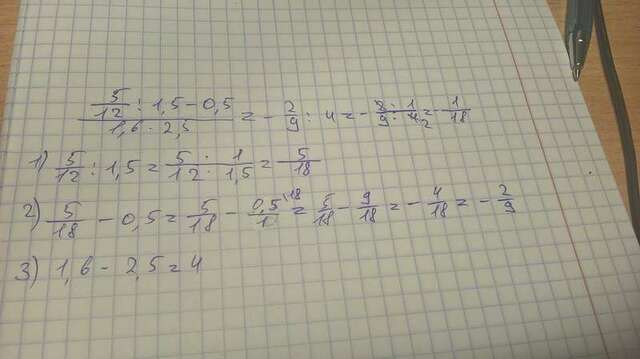 5/12 : 1,5 - 0,5 / 1,6 · 2,5 = - 2/9 : 4 = - 2·1/9·4₂ = - 1/18
1) 5/12 : 1,5 = 5/12 · 1/1,5 = 5/18
2) 5/18 - 0,5 = 5/18 - 0,5·18/1 = 5/18 - 9/18 = - 4/18 = - 2/9
3) 1,6 - 2,5 = 4